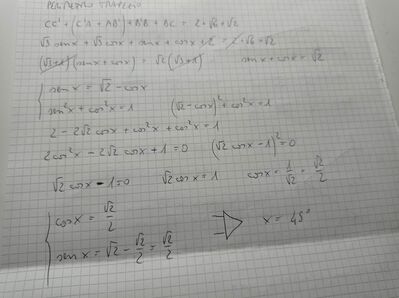 PERIMETRO TRAPEZIO
CC' + (C'A + AB') + B'B + BC = 2+√6+√2
√3 sen x + √3 cos x + sen x + cos x + 2 = 2+√6+√2
(√3+1)(sen x + cos x) = √2(√3+1) sen x + cos x = √2
sen x = √2 - cos x
sen²x + cos²x = 1 (√2 - cos x)² + cos²x = 1
2 - 2√2 cos x + cos²x + cos²x = 1
2cos²x - 2√2 cos x + 1 = 0 (√2 cos x - 1)² = 0
√2 cos x - 1 = 0 √2 cos x = 1 cos x = 1/√2 = √2/2
cos x = √2/2
sen x = √2 - √2/2 = √2/2 x = 45°